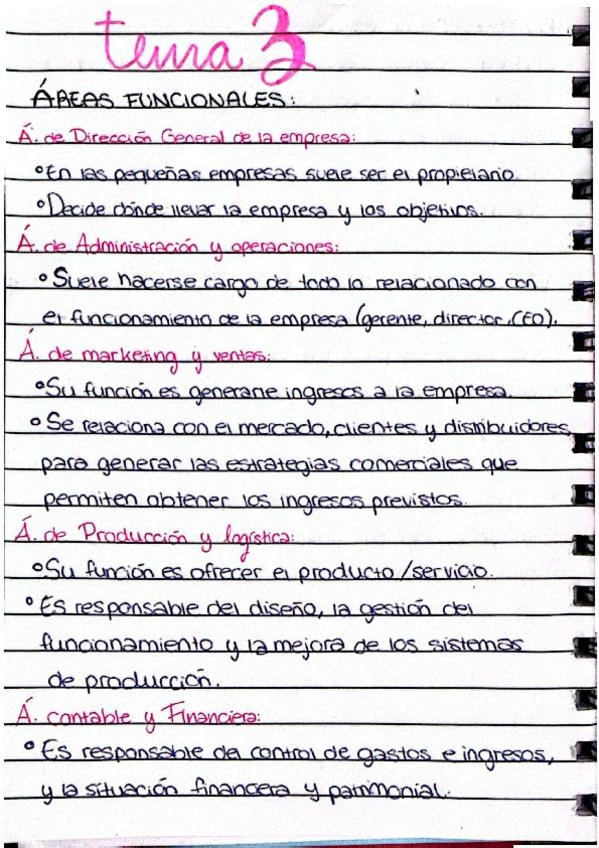 tema 3
ÁREAS FUNCIONALES:
Á. de Dirección General de la empresa:
°En las pequeñas empresas suele ser el propietario.
°Decide dónde llevar la empresa y los objetivos.
Á. de Administración y operaciones:
°Suele hacerse cargo de todo lo relacionado con
el funcionamiento de la empresa (gerente, director, CEO).
Á. de marketing y ventas:
°Su función es generarle ingresos a la empresa.
°Se relaciona con el mercado, clientes y distribuidores
para generar las estrategias comerciales que
permiten obtener los ingresos previstos.
Á. de Producción y logística:
°Su función es ofrecer el producto/servicio.
°Es responsable del diseño, la gestión del
funcionamiento y la mejora de los sistemas
de producción.
Á. contable y Financiera:
°Es responsable del control de gastos e ingresos,
y la situación financiera y patrimonial.